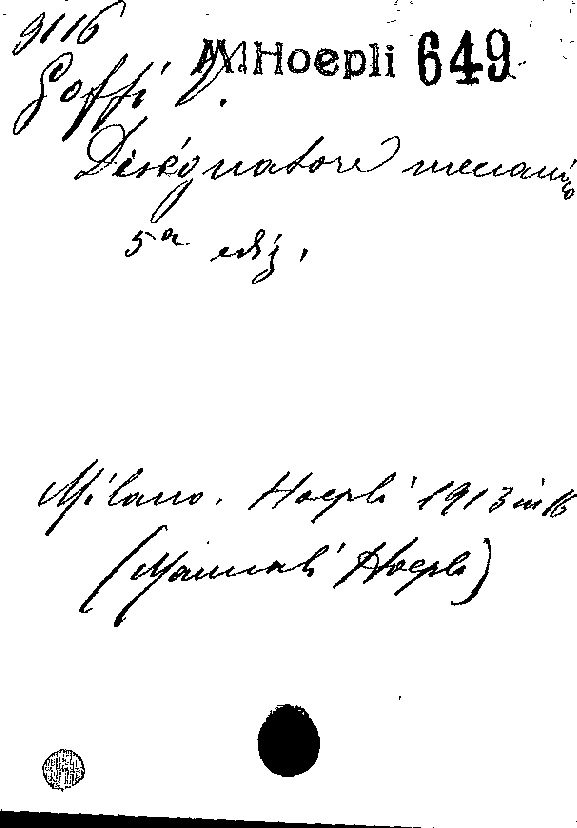 9116
M. Hoepli 649
Goffi V.
Disegnatore meccanico
5a ediz.
Milano. Hoepli 1913 in 16
(Manuali Hoepli)